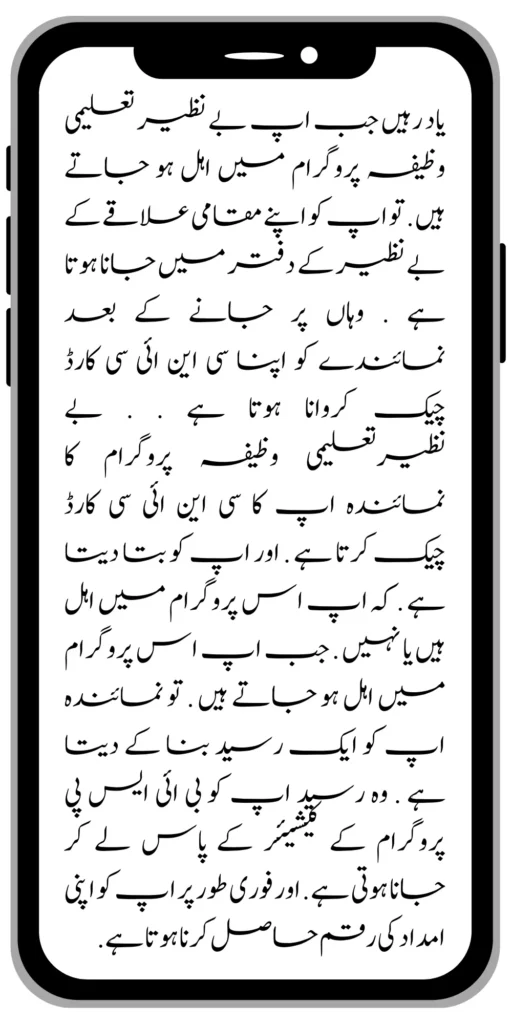 یاد رہیں جب اپ بے نظیر تعلیمی
وظیفہ پروگرام میں اہل ہو جاتے
ہیں. تو اپ کو اپنے مقامی علاقے کے
بے نظیر کے دفتر میں جانا ہوتا
ہے . وہاں پر جانے کے بعد
نمائندے کو اپنا سی این ائی سی کارڈ
چیک کروانا ہوتا ہے . . بے
نظیرتعلیمی وظیفہ پروگرام کا
نمائندہ اپ کا سی این ائی سی کارڈ
چیک کرتا ہے . اور اپ کو بتا دیتا
ہے . کہ اپ اس پروگرام میں اہل
ہیں یا نہیں . جب اپ اس پروگرام
میں اہل ہو جاتے ہیں . تو نمائندہ
اپ کو ایک رسید بنا کے دیتا
ہے . وہ رسید اپ کو بی ائی ایس پی
پروگرام کے کے پاس لے کر
جانا ہوتی ہے . اور فوری طور پر اپ کو اپنی
امداد کی رقم حاصل کرنا ہوتا ہے .